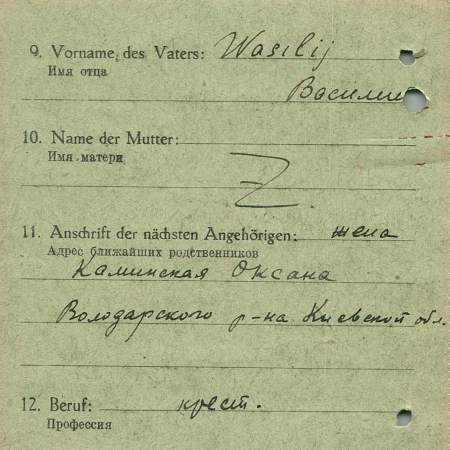 9. Vorname des Vaters: Wasilij
Имя отца
Василий
10. Name der Mutter:
Имя матери
11. Anschrift der nächsten Angehörigen: жена
Адрес ближайших родственников
Каминская Оксана
Володарского р-на Киевской обл.
12. Beruf: крест.
Профессия